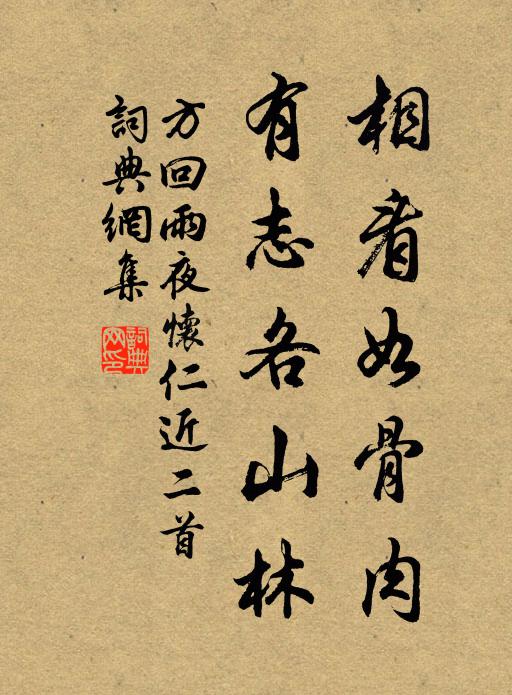 相看如骨肉
有志各山林
方回雨夜懷仁近二首
詞典網集
詞典
网印